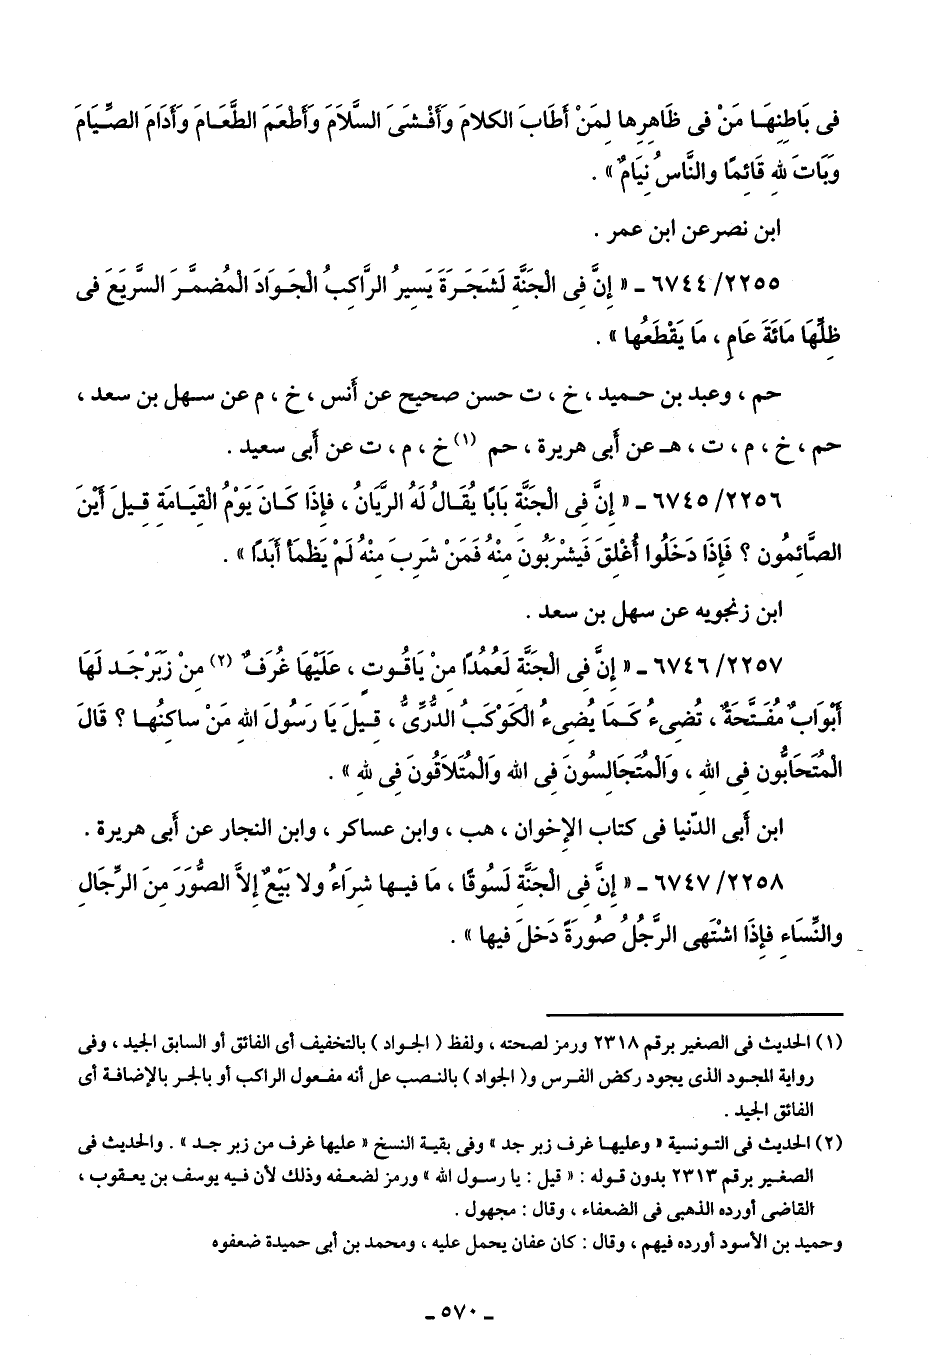 فى بَاطِنِهَا مَنْ فى ظَاهِرِها لِمَنْ أَطَابَ الكلامَ وَأَفْشَى السَّلَامَ وَأَطْعَمَ الطَّعَامَ وَأَدَامَ الصِّيَامَ
وَبَاتَ للهِ قَائِمًا والنَّاسُ نِيَامٌ » .
ابن نصر عن ابن عمر .
٢٢٥٥/ ٦٧٤٤ ـ « إِنَّ فِى الْجَنَّةِ لَشَجَرَةً يَسِيرُ الرَّاكِبُ الْجَوَادَ الْمُضَمَّرَ السَّرِيعَ فى
ظِلِّهَا مَائَةَ عَامٍ ، مَا يَقْطَعُها » .
حم ، وعبد بن حميد ، خ ، ت حسن صحيح عن أنس ، خ ، م عن سهل بن سعد ،
حم ، خ ، م ، ت ، هـ عن أبى هريرة ، حم (١) خ ، م ، ت عن أبى سعيد .
٢٢٥٦/ ٦٧٤٥ ـ « إِنَّ فِى الْجَنَّةِ بَابًا يُقَالُ لَهُ الرَّيَانُ ، فإِذَا كَانَ يَوْمُ الْقِيَامَةِ قِيلَ أَيْنَ
الصَّائِمُون ؟ فَإِذَا دَخَلُوا أُغْلِقَ فَيشْرَبُونَ مِنْهُ فَمَنْ شَرِبَ مِنْهُ لَمْ يَظْمَأْ أَبَدًا » .
ابن زنجويه عن سهل بن سعد .
٢٢٥٧/ ٦٧٤٦ ـ « إِنَّ فِى الْجَنَّةِ لَعُمُدًا مِنْ يَاقُوتٍ ، عَلَيْهَا غُرَفٌ (٢) مِنْ زَبَرْجَدٍ لَهَا
أَبْوَابٌ مُفَتَّحَةٌ ، تُضِىءُ كَمَا يُضِىءُ الْكَوْكَبُ الدُّرِّىُّ ، قِيلَ يَا رَسُولَ اللهِ مَنْ ساكِنُها ؟ قَالَ
الْمُتَحَابُّون فِى اللهِ ، وَالْمُتَجَالِسُونَ فِى اللهِ وَالْمُتَلَاقُونَ فِى للهِ » .
ابن أبى الدّنيا فى كتاب الإخوان ، هب ، وابن عساكر ، وابن النجار عن أبى هريرة .
٢٢٥٨/ ٦٧٤٧ ـ « إِنَّ فِى الْجَنَّةِ لَسُوقًا ، مَا فِيها شِرَاءُ ولا بَيْعٌ إِلاَّ الصُّوَرَ مِنَ الرِّجَالِ
والنِّسَاءِ فإِذَا اشْتَهى الرَّجُلُ صُورَةً دَخلَ فِيها » .
(١) الحديث فى الصغير برقم ٢٣١٨ ورمز لصحته ، ولفظ ( الجواد ) بالتخفيف أى الفائق أو السابق الجيد ، وفى
رواية المجود الذى يجود ركض الفرس و( الجواد ) بالنصب عل أنه مفعول الراكب أو بالجر بالإضافة أى
الفائق الجيد .
(٢) الحديث فى التونسية « وعليها غرف زبر جد » وفى بقية النسخ « عليها غرف من زبر جد » . والحديث فى
الصغير برقم ٢٣١٣ بدون قوله : « قيل : يا رسول الله » ورمز لضعفه وذلك لأن فيه يوسف بن يعقوب ،
القاضى أورده الذهبى فى الضعفاء ، وقال : مجهول .
وحميد بن الأسود أورده فيهم ، وقال : كان عفان يحمل عليه ، ومحمد بن أبى حميدة ضعفوه
ـ ٥٧٠ ـ